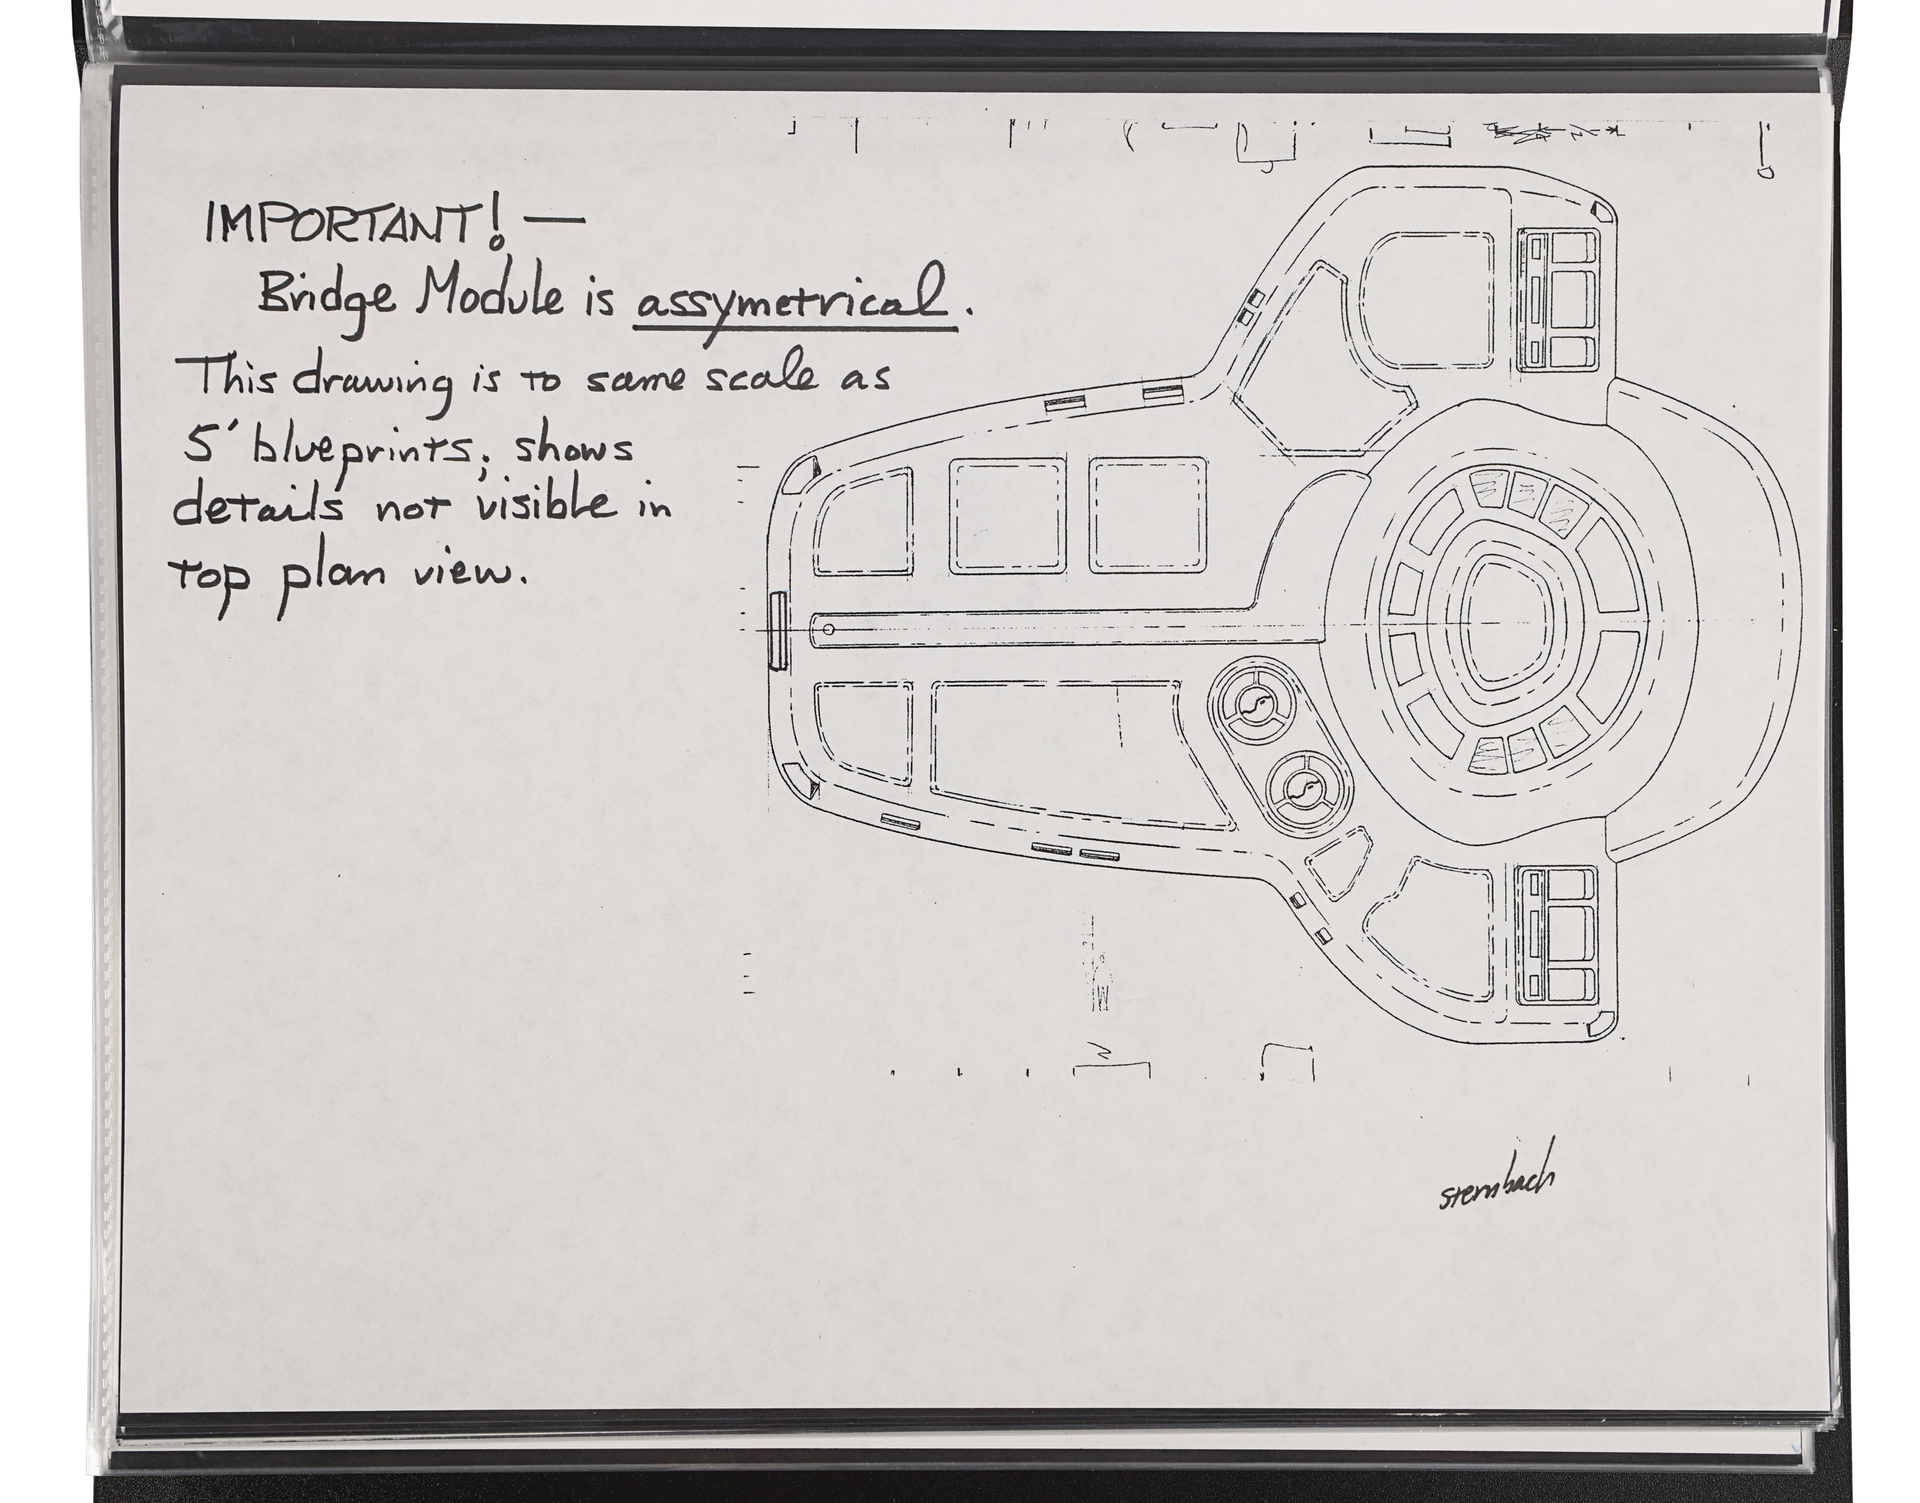 IMPORTANT! —
Bridge Module is assymetrical.
This drawing is to same scale as
5' blueprints; shows
details not visible in
top plan view.
sternbach